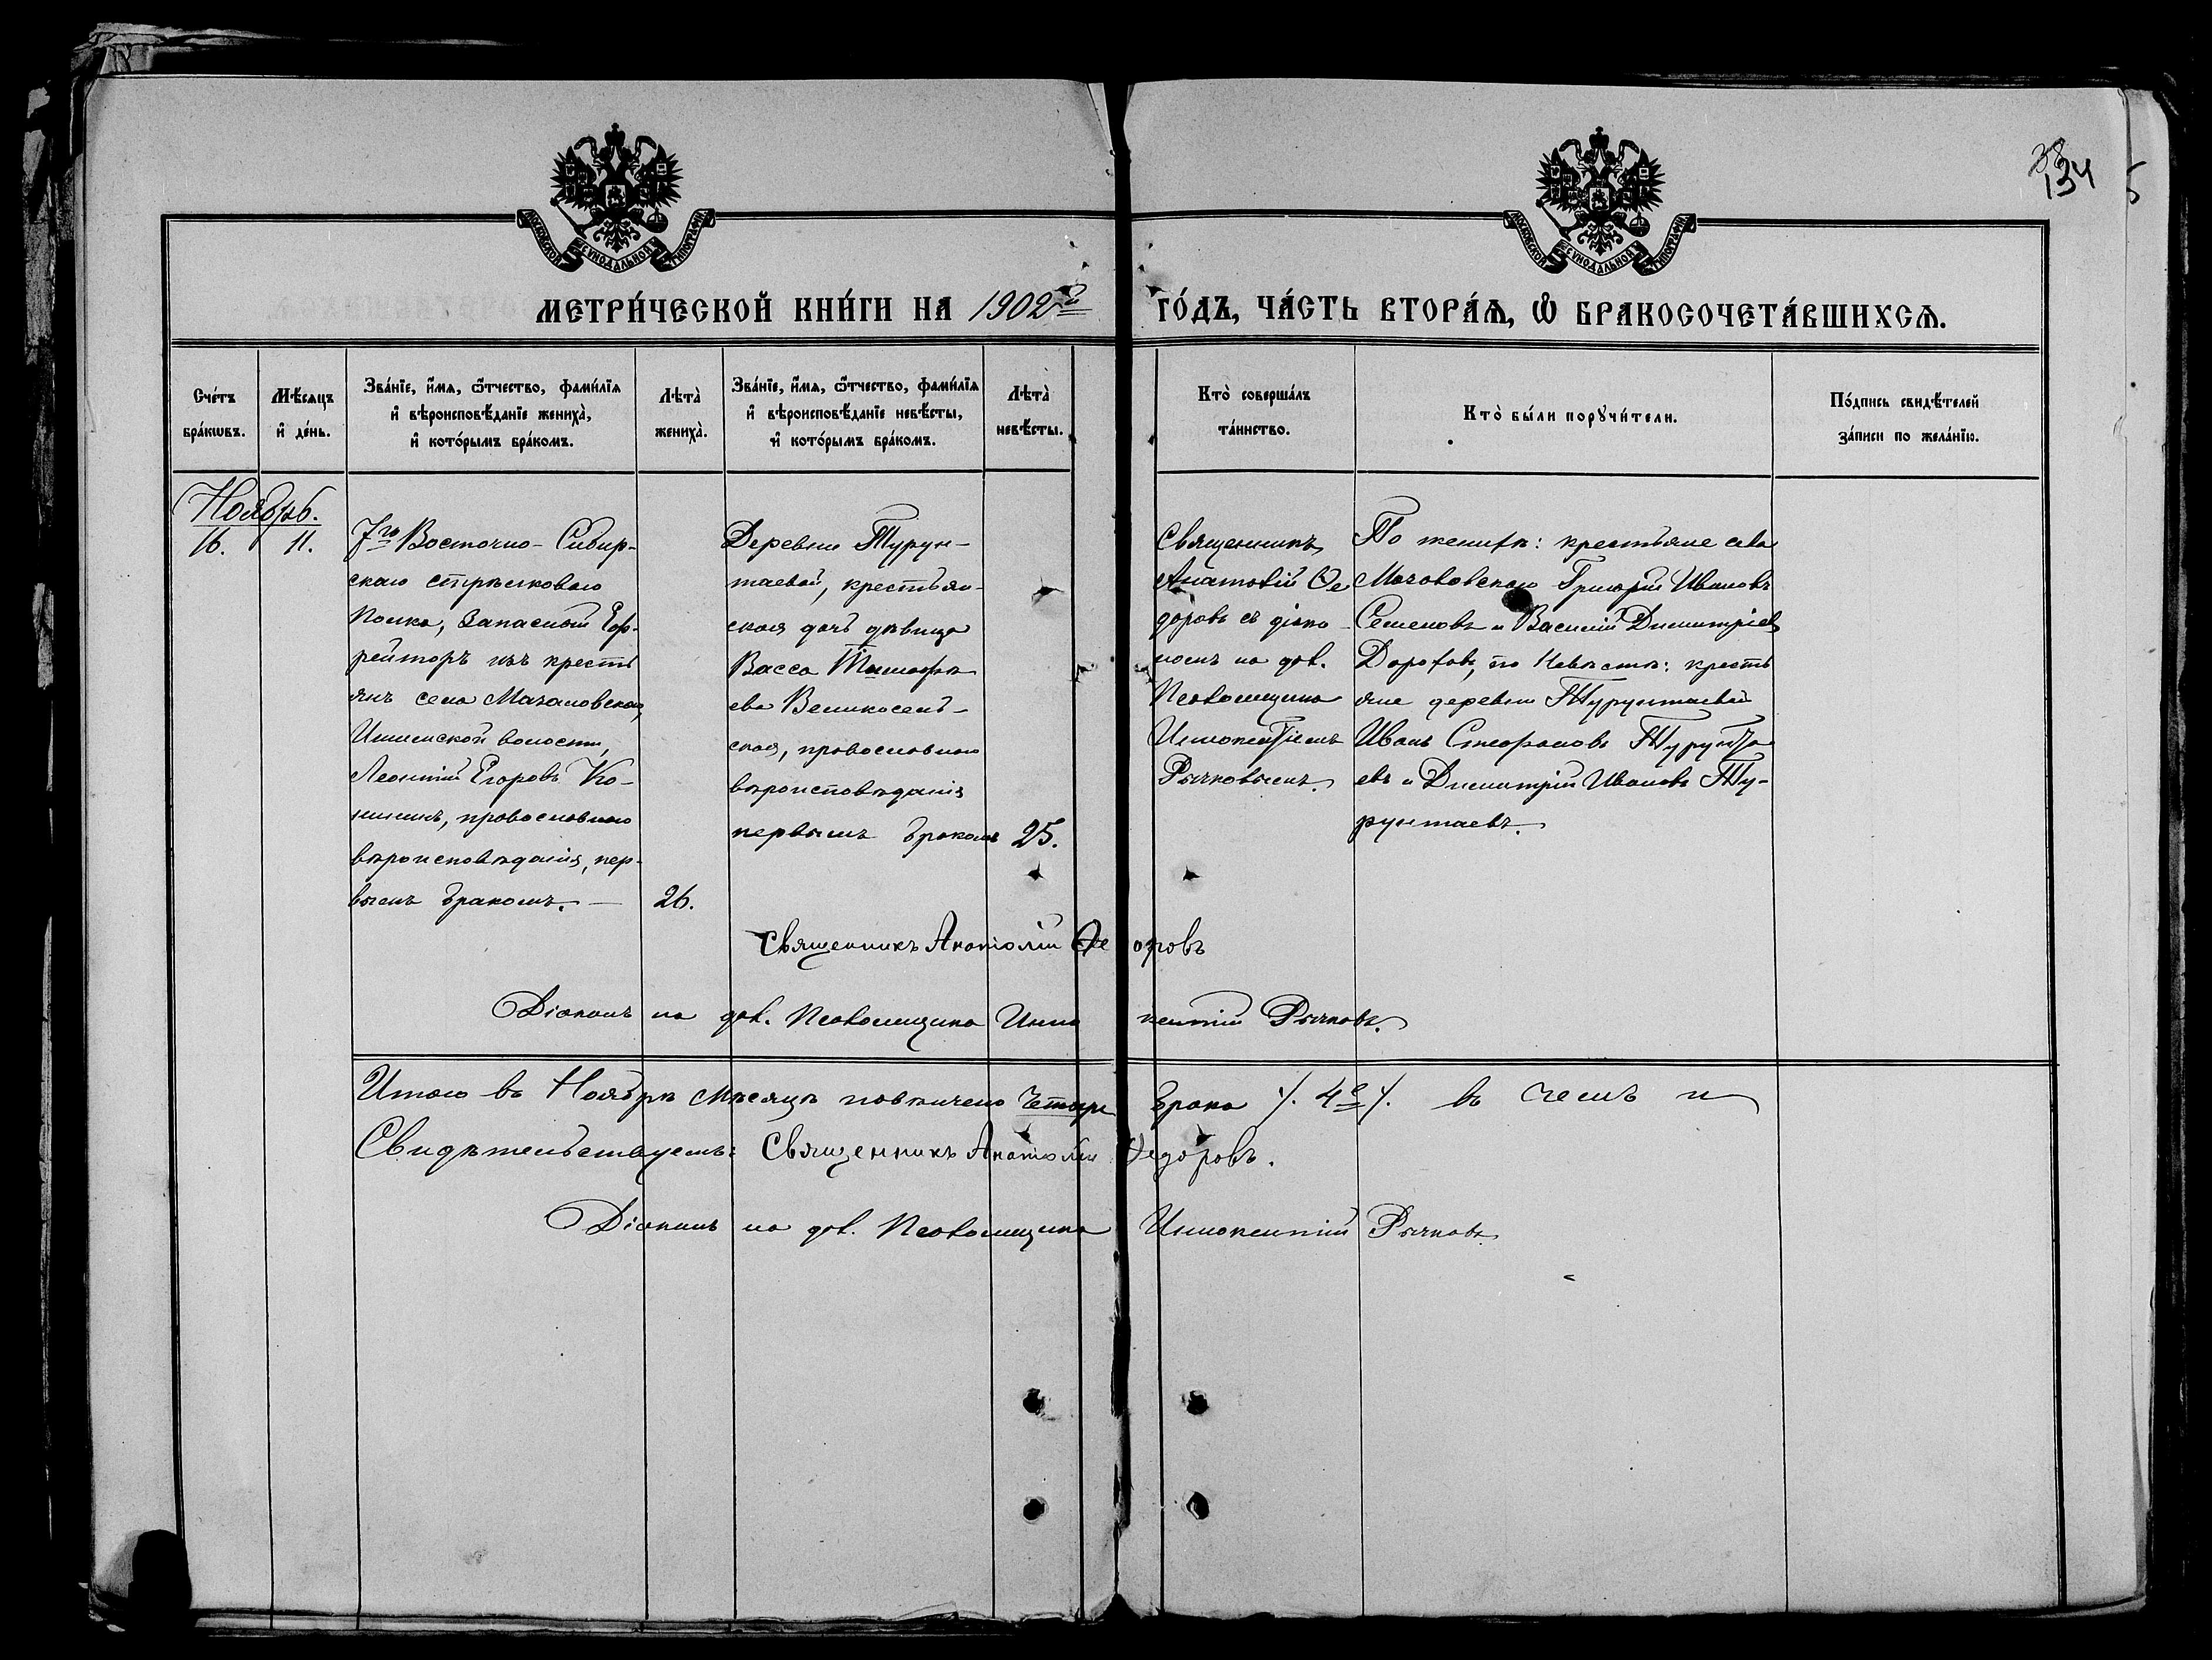 134
МОСКОВСКОЙ СѴНОДАЛЬНОЙ ТИПОГРАФІИ
МОСКОВСКОЙ СѴНОДАЛЬНОЙ ТИПОГРАФІИ
МЕТРИ́ЧЕСКОЙ КНИ́ГИ НА 1902й ГО́ДЪ, ЧА́СТЬ ВТОРА́Ѧ, Ѽ БРАКОСОЧЕТА́ВШИХСѦ.
Сче́тъ
бра́кωвъ.
Мѣ́сяцъ
и҆ де́нь.
Зва́нїе, и҆́мѧ, ѻ҆́тчество, фами́лїѧ
и҆ вѣроисповѣ́данїе жениха̀,
и҆ кото́рымъ бра́комъ.
Лѣта̀
жениха̀.
Зва́нїе, и҆́мѧ, ѻ҆́тчество, фами́лїѧ
и҆ вѣроисповѣ́данїе невѣ́сты,
и҆ кото́рымъ бра́комъ.
Лѣта̀
невѣ́сты.
Кто̀ соверша́лъ
та́инство.
Кто̀ бы́ли порꙋчи́тели.
По́дпись свидѣ́телей
за́писи по жела́нїю.
Ноябрь.
16.
11.
7го Восточно-Сибир-
скаго стрѣлковаго
полка, запасный Еф-
рейторъ изъ кресть
янъ села Мазаловскаго,
Ишинской волости,
Леонтій Егоровъ Ко-
нинъ, православнаго
вѣроисповѣданія, пер-
вымъ бракомъ. —
26.
Деревни Турун-
таевой, крестьян-
ская дочь дѣвица
Васса Тимофѣ
ева Великосель-
ская, православнаго
вѣроисповѣданія
первымъ бракомъ
25.
Священникъ
Анатолій Ѳе
доровъ съ діако
номъ на дов.
Псаломщика
Иннокентіемъ
Рычковымъ.
По женихѣ: крестьяне села
Мазаловскаго Григорій Ивановъ
Семеновъ и Василій Димитріев
Дорофовъ, по Невѣстѣ: кресть
яне деревни Турунтаевой
Иванъ Стефановъ Турунта
евъ и Димитрій Ивановъ Ту-
рунтаевъ.
Священникъ Анатолій Ѳедоровъ
Діаконъ на дов. Псаломщика Иннокентій Рычковъ.
Итого въ Ноябрѣ мѣсяцѣ повѣнчано четыре брака /. 4е /. въ чемъ и
Свидѣтельствуемъ: Священникъ Анатолій Ѳедоровъ.
Діаконъ на дов. Псаломщика Иннокентій Рычковъ.